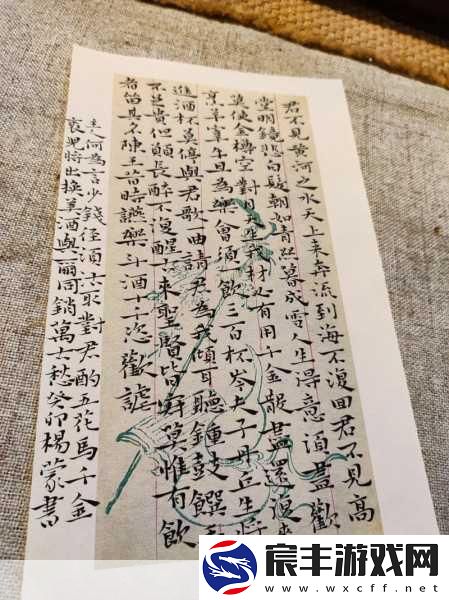 君不見黄河之水天上来奔流到海不復回君不見高
堂明鏡悲白髮朝如青絲暮成雪人生得意須盡歡
莫使金樽空對月天生我材必有用千金散盡還復来
烹羊宰牛且為樂會須一飲三百杯岑夫子丹丘生將
進酒杯莫停與君歌一曲請君為我傾耳聽鍾鼓饌玉
不足貴但願長醉不復醒古来聖賢皆寂莫惟有飲
者留其名陳王昔時讌樂斗酒十千恣歡謔
主人何為言少錢徑酒六取對君酌五花馬千金
裘兒將出換美酒與爾同銷萬古愁癸卯楊蒙書
宸丰游戏网
www.wxcff.net